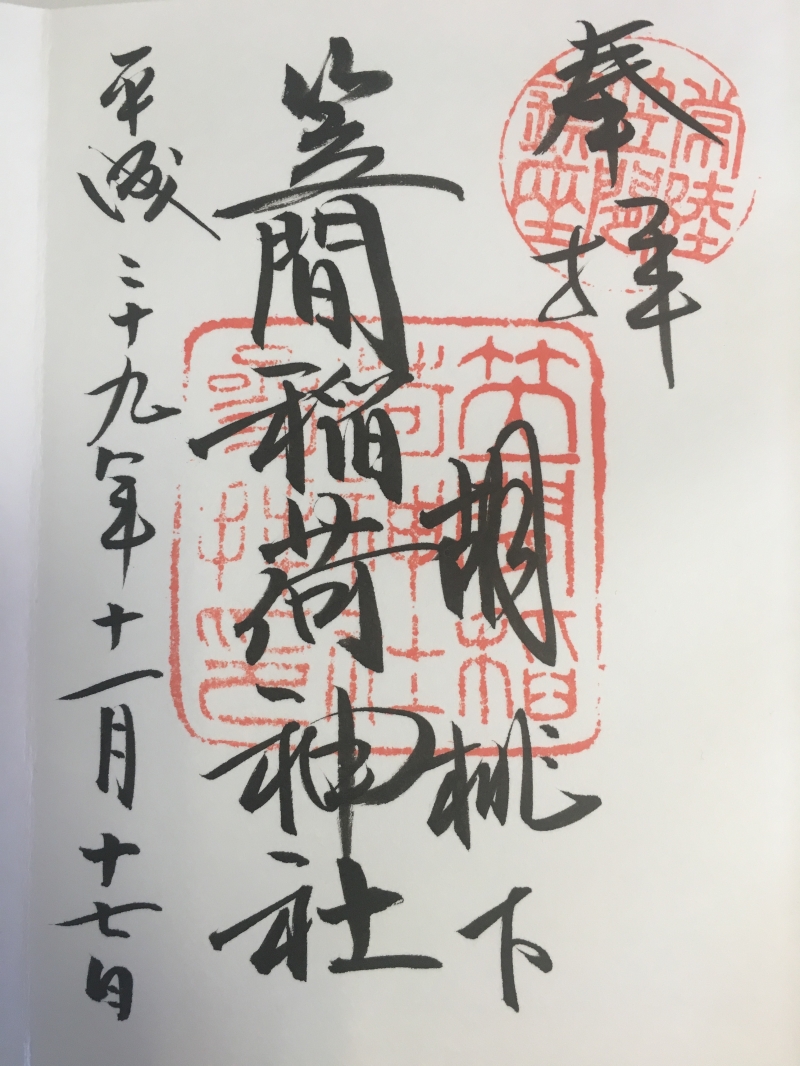 奉拝
常陸
笠間
鎮座
胡桃下
笠間稲
荷神社
笠間稲荷神社
平成二十九年十一月十七日